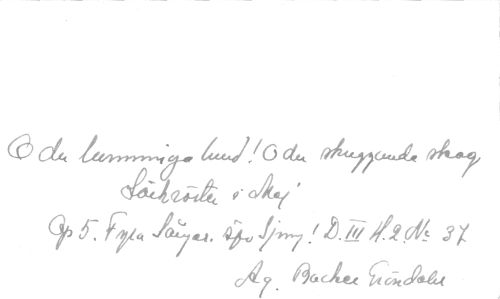 O du lummiga lund! O du skuggande skog
Lärkröster i Maj
Op 5. Fyra Sånger. Sjung! D. III H. 2. No 37
Ag. Backer Gröndahl